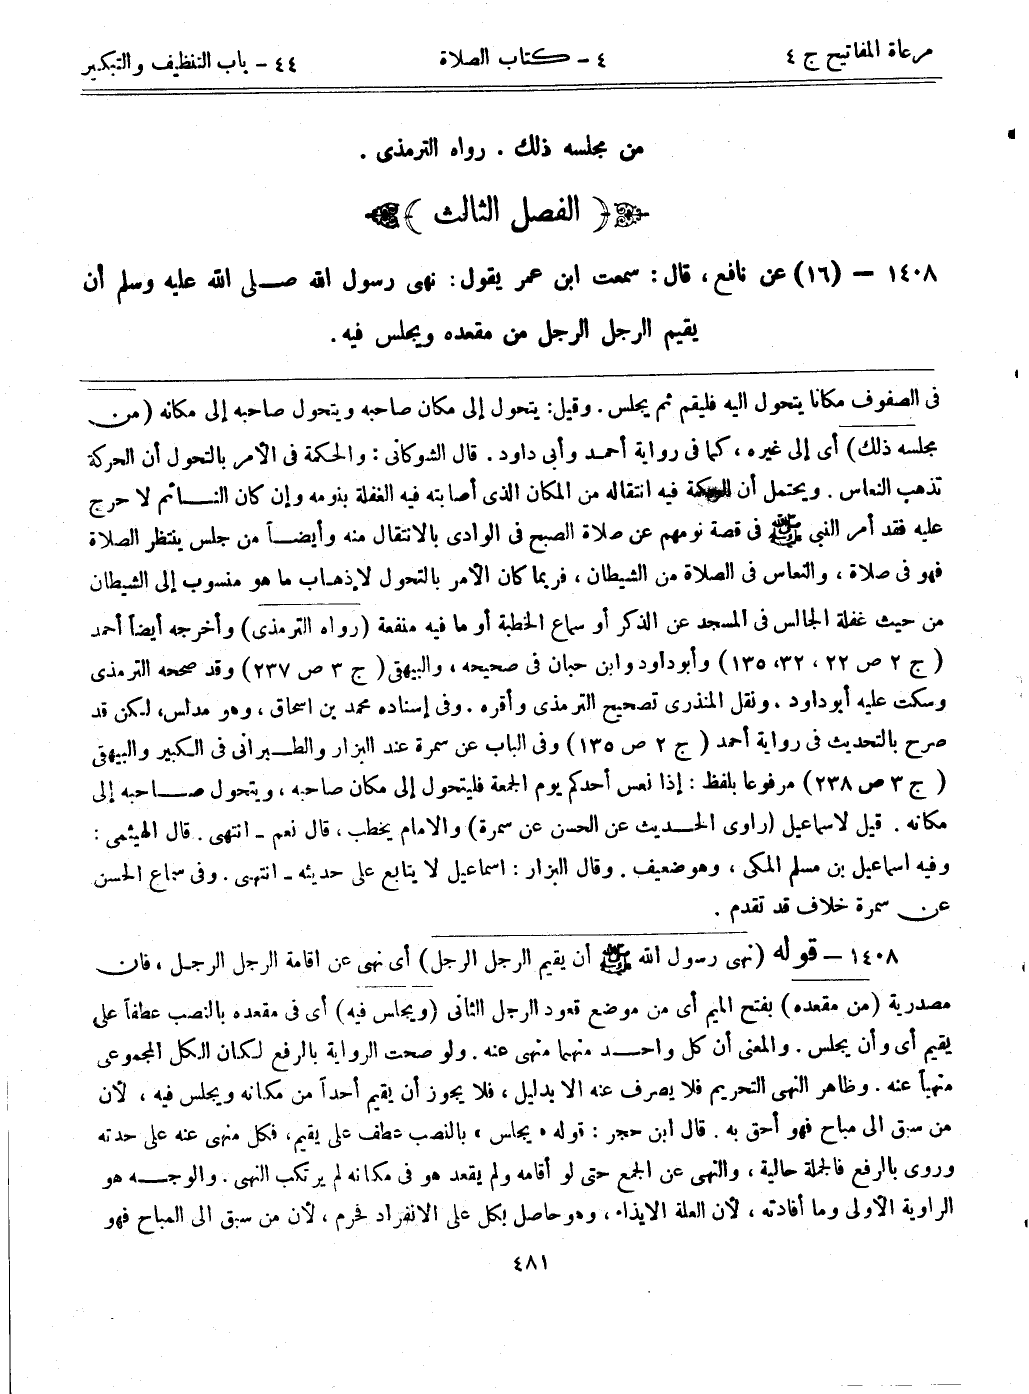 مرعاة المفاتيح ج ٤
٤ - كتاب الصلاة
٤٤ - باب التنظيف والتبكير
من مجلسه ذلك . رواه الترمذى .
( الفصل الثالث )
١٤٠٨ – (١٦) عن نافع ، قال : سمعت ابن عمر يقول : نهى رسول الله صلى الله عليه وسلم أن
يقيم الرجل الرجل من مقعده ويجلس فيه .
فى الصفوف مكانا يتحول اليه فليقم ثم يجلس . وقيل : يتحول إلى مكان صاحبه ويتحول صاحبه إلى مكانه (من
مجلسه ذلك) أى إلى غيره ، كما فى رواية أحمد وأبى داود . قال الشوكانى : والحكمة فى الأمر بالتحول أن الحركة
تذهب النعاس . ويحتمل أن الحكمة فيه انتقاله من المكان الذى أصابته فيه الغفلة بنومه وإن كان النائم لا حرج
عليه فقد أمر النبى ﷺ فى قصة نومهم عن صلاة الصبح فى الوادى بالانتقال منه وأيضاً من جلس ينتظر الصلاة
فهو فى صلاة ، والنعاس فى الصلاة من الشيطان ، فربما كان الأمر بالتحول لإذهاب ما هو منسوب إلى الشيطان
من حيث غفلة الجالس فى المسجد عن الذكر أو سماع الخطبة أو ما فيه منفعة (رواه الترمذى) وأخرجه أيضاً أحمد
( ج ٢ ص ٢٢ ، ٣٢، ١٣٥) وأبوداود وابن حبان فى صحيحه ، والبيهقى ( ج ٣ ص ٢٣٧) وقد صححه الترمذى
وسكت عليه أبوداود . ونقل المنذرى تصحيح الترمذى وأقره . وفى إسناده محمد بن اسحاق ، وهو مدلس، لكن قد
صرح بالتحديث فى رواية أحمد ( ج ٢ ص ١٣٥) وفى الباب عن سمرة عند البزار والطبرانى فى الكبير والبيهقى
( ج ٣ ص ٢٣٨) مرفوعا بلفظ : إذا نعس أحدكم يوم الجمعة فليتحول إلى مكان صاحبه ، ويتحول صاحبه إلى
مكانه . قيل لاسماعيل (راوى الحديث عن الحسن عن سمرة) والامام يخطب ، قال نعم - انتهى . قال الهيثمى :
وفيه اسماعيل بن مسلم المكى ، وهو ضعيف . وقال البزار : اسماعيل لا يتابع على حديثه - انتهى . وفى سماع الحسن
عن سمرة خلاف قد تقدم .
١٤٠٨ – قوله (نهى رسول الله ﷺ أن يقيم الرجل الرجل) أى نهى عن اقامة الرجل الرجل ، فان
مصدرية (من مقعده) بفتح الميم أى من موضع قعود الرجل الثانى (ويجلس فيه) أى فى مقعده بالنصب عطفاً على
يقيم أى وأن يجلس . والمعنى أن كل واحد منهما منهى عنه . ولو صحت الرواية بالرفع لكان الكل المجموعى
منهياً عنه . وظاهر النهى التحريم فلا يصرف عنه الا بدليل ، فلا يجوز أن يقيم أحداً من مكانه ويجلس فيه ، لأن
من سبق الى مباح فهو أحق به . قال ابن حجر : قوله « يجلس » بالنصب عطف على يقيم، فكل منهى عنه على حدته
وروى بالرفع فالجملة حالية ، والنهى عن الجمع حتى لو أقامه ولم يقعد هو فى مكانه لم يرتكب النهى . والوجه هو
الراوية الأولى وما أفادته ، لأن العلة الايذاء ، وهو حاصل بكل على الانفراد فحرم ، لأن من سبق الى المباح فهو
٤٨١